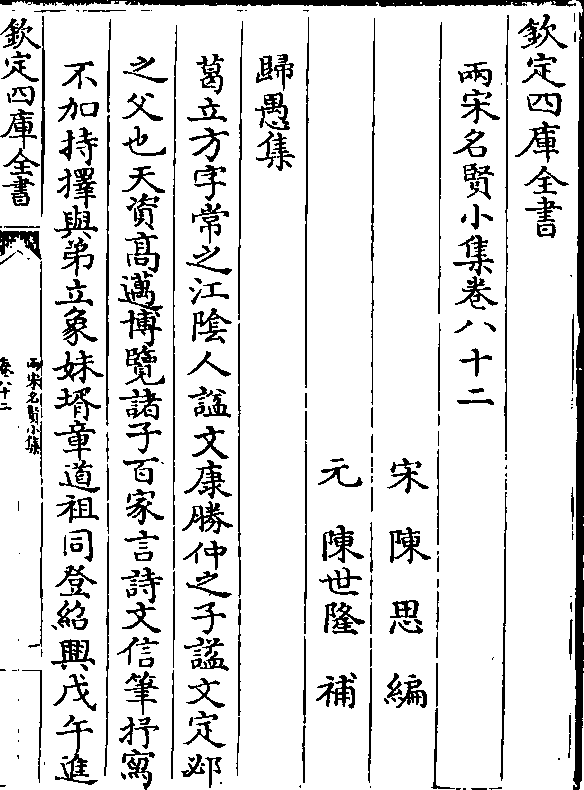 欽定四庫全書
兩宋名賢小集卷八十二
宋陳思編
元陳世隆補
歸愚集
葛立方字常之江陰人諡文康勝仲之子諡文定邲
之父也天資高邁博覽諸子百家言詩文信筆抒寫
不加持擇與弟立象妹壻章道祖同登紹興戊午進
欽定四庫全書
兩宋名賢小集
卷八十二